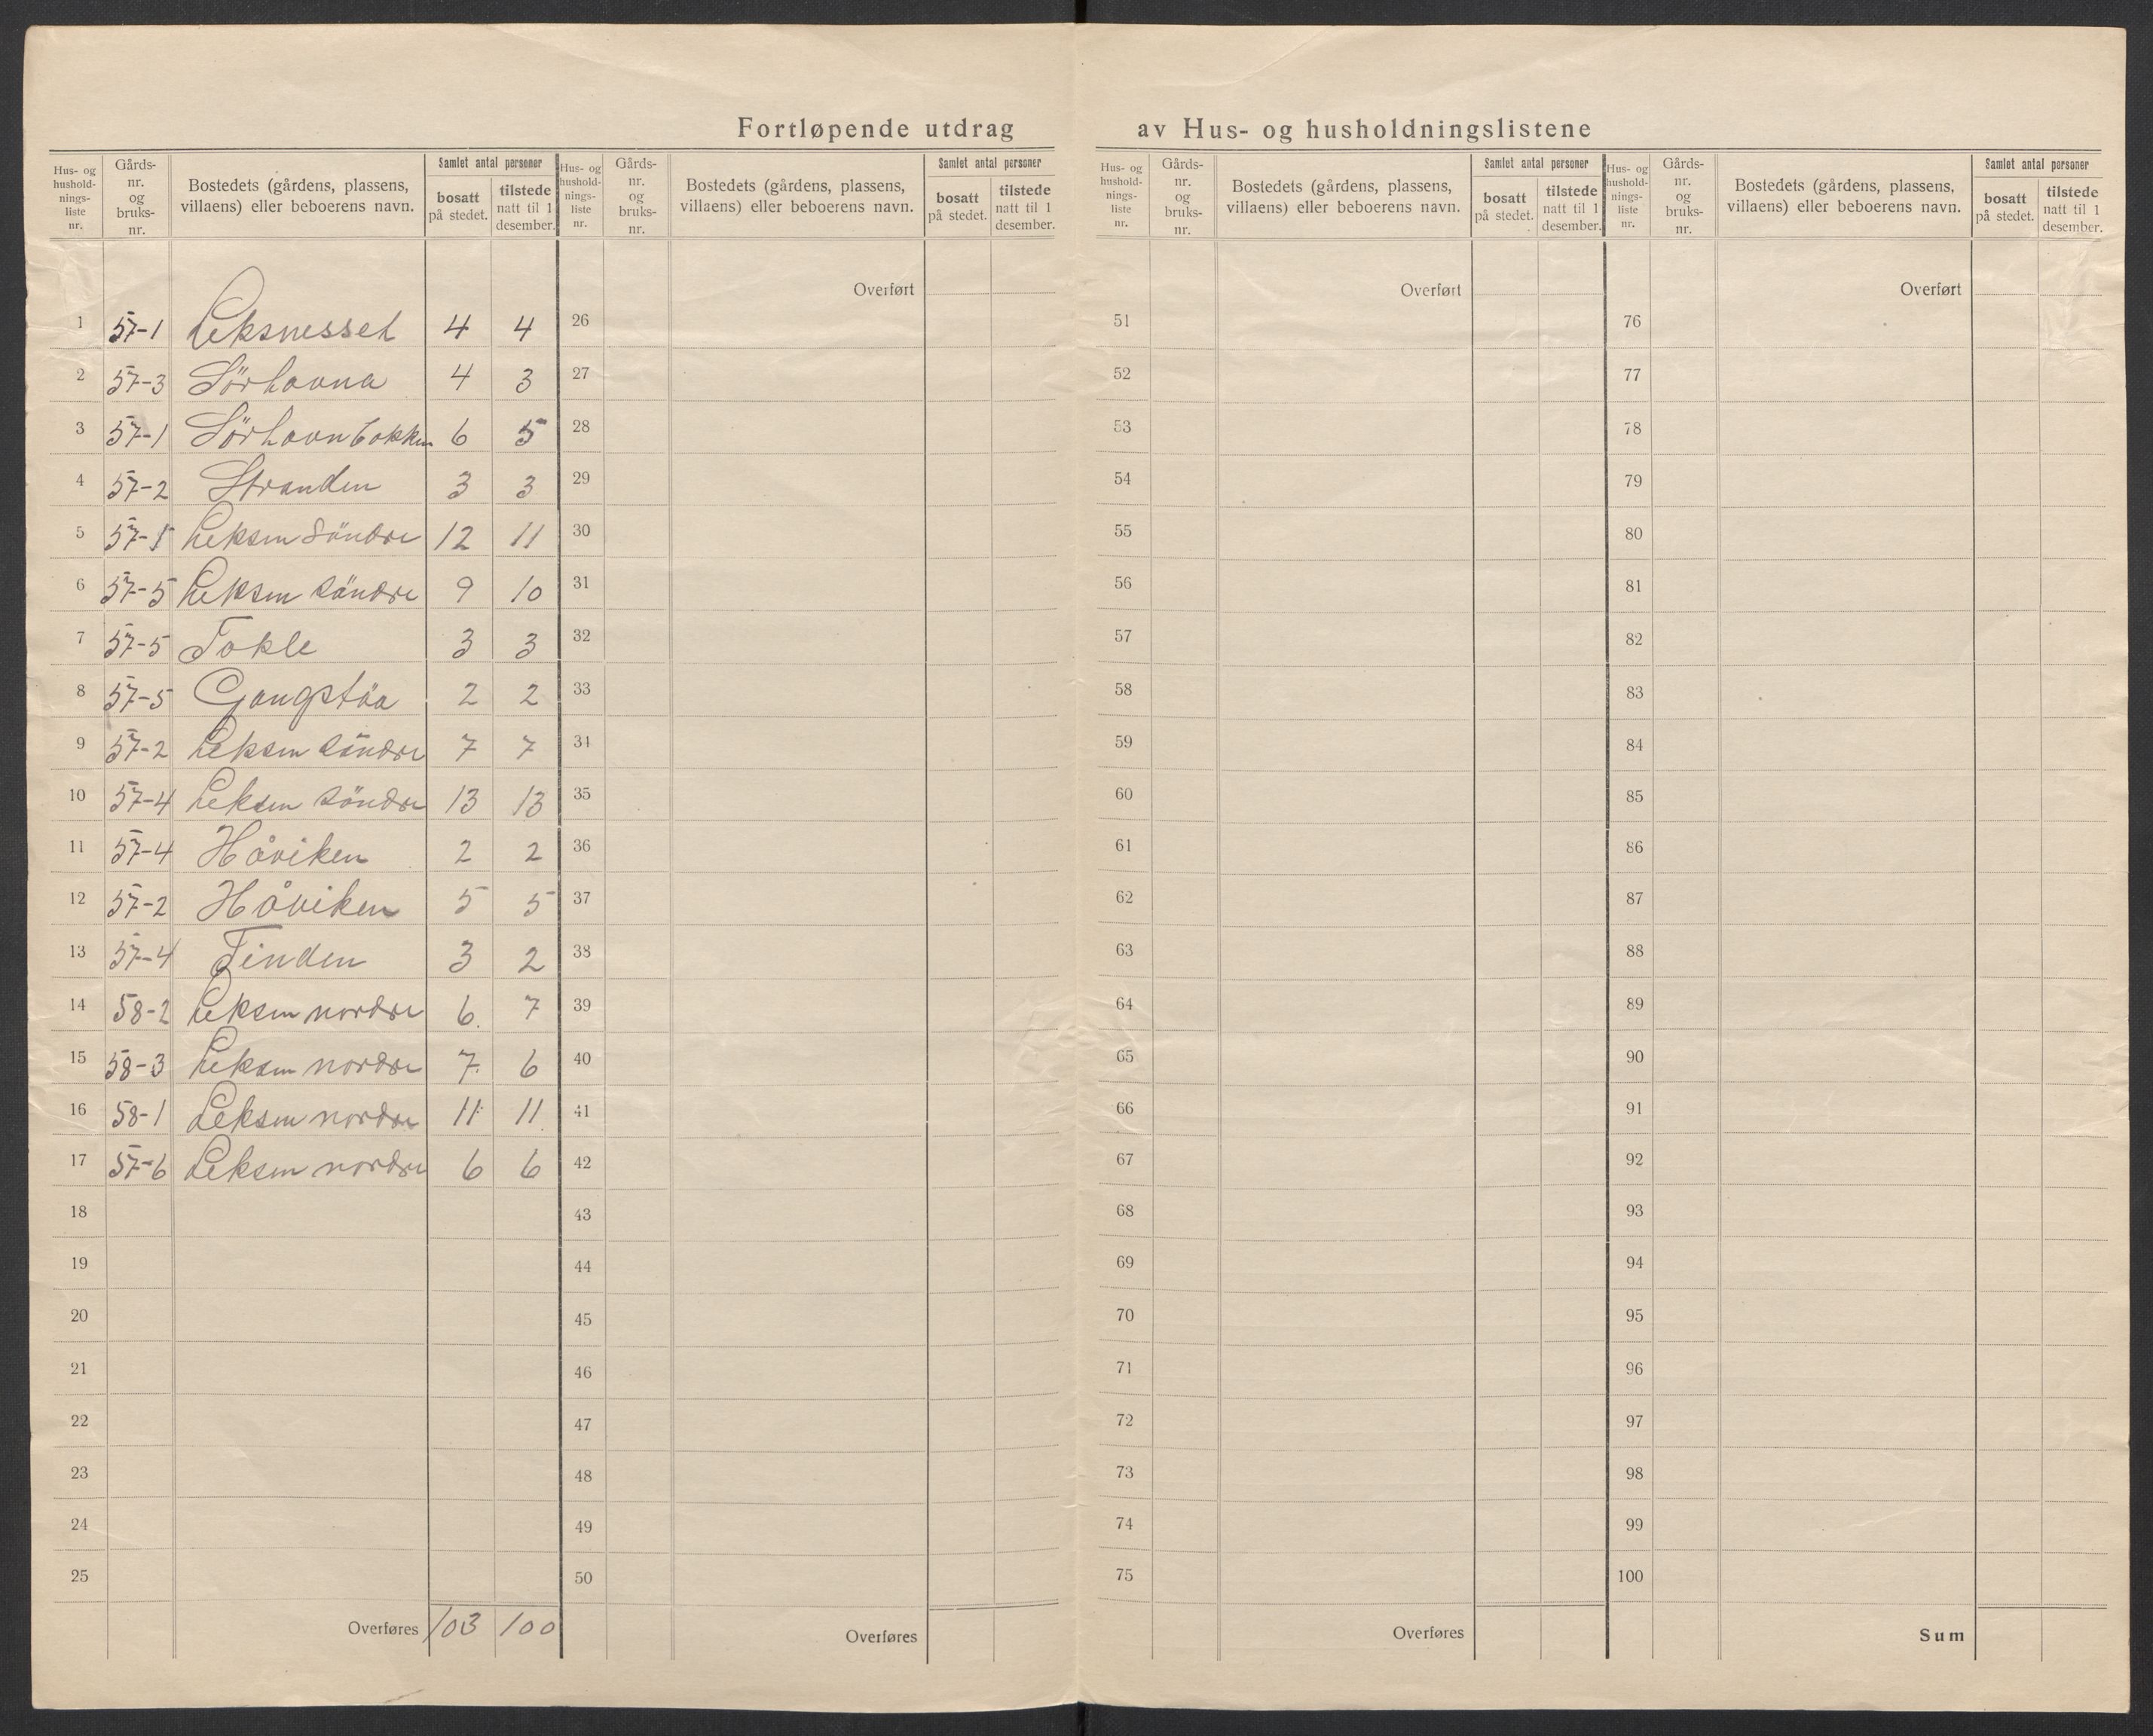 Fortløpende utdrag av Hus- og husholdningslistene
Hus- og hushold- nings- liste nr. | Gårds- nr. og bruks- nr. | Bostedets (gårdens, plassens, villaens) eller beboerens navn. | Samlet antal personer | bosatt på stedet. | tilstede natt til 1 desember.
1 57-1 Leksnesset 4 4
2 57-3 Sörhavna 4 3
3 57-1 Sörhavnbakken 6 5
4 57-2 Stranden 3 3
5 57-1 Leksen Söndre 12 11
6 57-5 Leksen söndre 9 10
7 57-5 Tokle 3 3
8 57-5 Gangstöa 2 2
9 57-2 Leksen söndre 7 7
10 57-4 Leksen söndre 13 13
11 57-4 Håviken 2 2
12 57-2 Håviken 5 5
13 57-4 Tinden 3 2
14 58-2 Leksen nordre 6 7
15 58-3 Leksen nordre 7 6
16 58-1 Leksen nordre 11 11
17 57-6 Leksen nordre 6 6
18
19
20
21
22
23
24
25
Overføres 103 100
Hus- og hushold- nings- liste nr. | Gårds- nr. og bruks- nr. | Bostedets (gårdens, plassens, villaens) eller beboerens navn. | Samlet antal personer | bosatt på stedet. | tilstede natt til 1 desember.
Overført
26
27
28
29
30
31
32
33
34
35
36
37
38
39
40
41
42
43
44
45
46
47
48
49
50
Overføres
Hus- og hushold- nings- liste nr. | Gårds- nr. og bruks- nr. | Bostedets (gårdens, plassens, villaens) eller beboerens navn. | Samlet antal personer | bosatt på stedet. | tilstede natt til 1 desember.
Overført
51
52
53
54
55
56
57
58
59
60
61
62
63
64
65
66
67
68
69
70
71
72
73
74
75
Overføres
Hus- og hushold- nings- liste nr. | Gårds- nr. og bruks- nr. | Bostedets (gårdens, plassens, villaens) eller beboerens navn. | Samlet antal personer | bosatt på stedet. | tilstede natt til 1 desember.
Overført
76
77
78
79
80
81
82
83
84
85
86
87
88
89
90
91
92
93
94
95
96
97
98
99
100
Sum